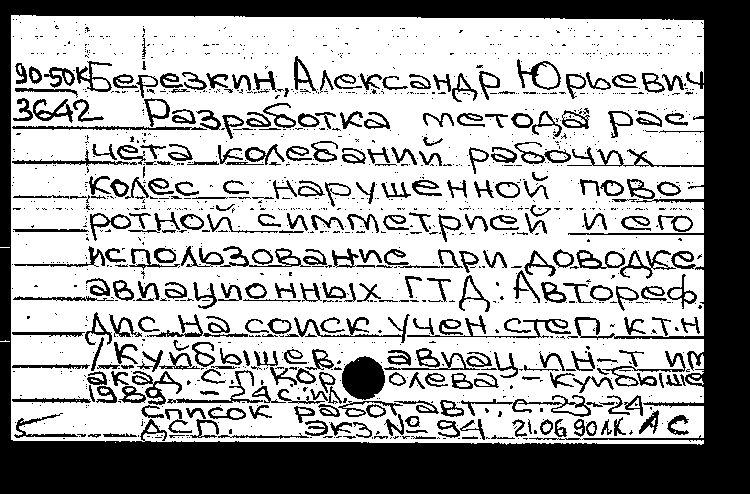 90-50к Березкин, Александр Юрьевич
3642 Разработка метода рас-
чёта колебаний рабочих
колес с нарушенной пово-
ротной симметрией и его
использование при доводке
авиационных ГТД: Автореф.
дис. на соиск. учен. степ. к.т.н
/ Куйбышев. авиац. ин-т им
акад. С.П. Королева. - Куйбыше
1989. - 24 с. ил.
Список работ авт.: с. 23-24
ДСП. Экз. № 94 21.06.90 АС